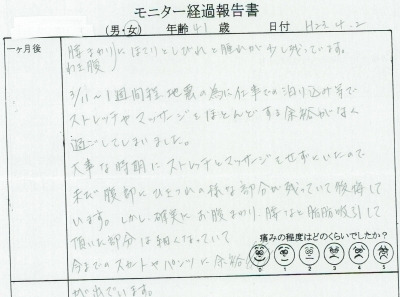 モニター経過報告書
(男・女) 年齢 41 歳 日付 H23.4.2
一ヶ月後
腰まわりにほてりとしびれと腫れが少し残っています。
わき腹
3/11~1週間程地震の為に仕事での泊り込み等で
ストレッチやマッサージをほとんどする余裕がなく
過ごしてしまいました。
大事な時期にストレッチマッサージをせずにいたので
未だ腹部にひきつれの様な部分が残っていて後悔して
います。しかし、確実にお腹まわり、腰など脂肪吸引して
頂いた部分は細くなっていて
今までのスカートやパンツに余裕
が出ています。
痛みの程度はどのくらいでしたか？
0 1 2 3 4 5